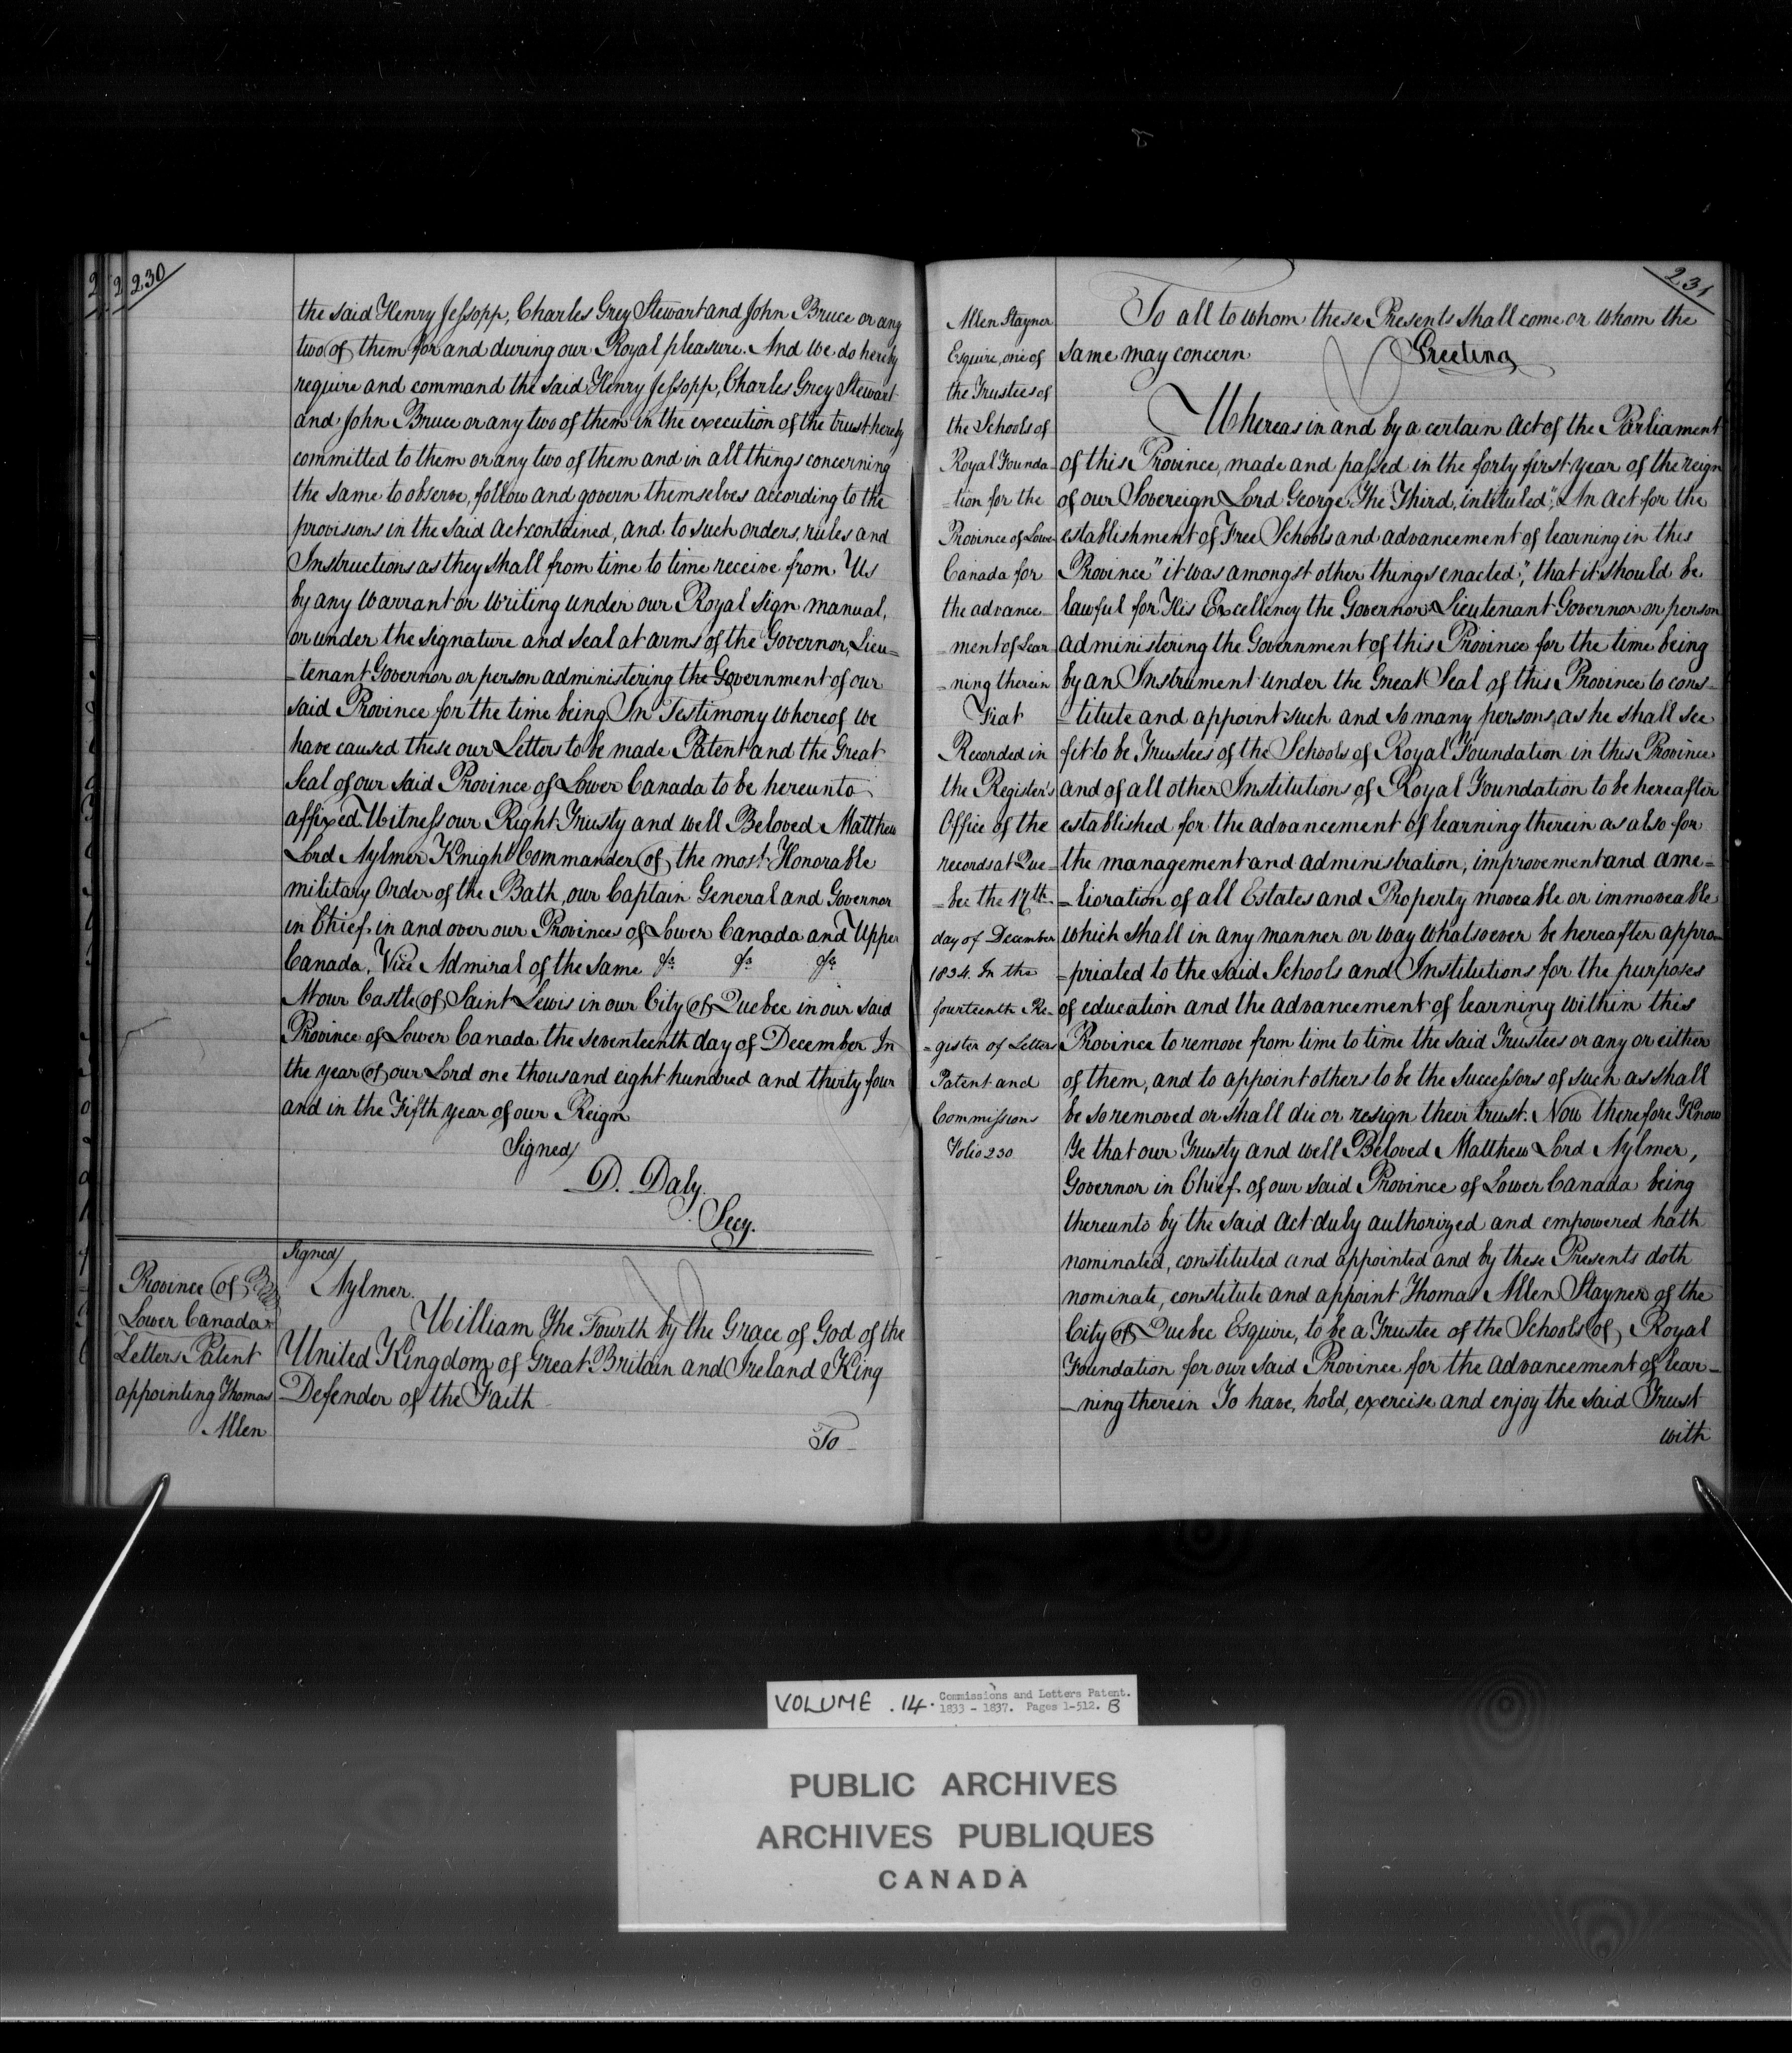 230
the said Henry Jessopp, Charles Grey Stewart and John Bruce or any
two of them for and during our Royal pleasure. And we do hereby
require and command the said Henry Jessopp, Charles Grey Stewart
and John Bruce or any two of them in the execution of the trust hereby
committed to them or any two of them and in all things concerning
the same to observe, follow and govern themselves according to the
provisions in the said act contained, and to such orders, rules and
Instructions as they shall from time to time receive from Us
by any warrant or writing under our Royal sign manual,
or under the signature and seal at arms of the Governor, Lieu=
=tenant Governor or person administering the Government of our
said Province for the time being In Testimony whereof we
have caused these our Letters to be made Patent and the Great
Seal of our said Province of Lower Canada to be hereunto
affixed. Witness our Right Trusty and well Beloved Matthew
Lord Aylmer Knight Commander of the most Honorable
military Order of the Bath, our Captain General and Governor
in Chief in and over our Provinces of Lower Canada and Upper
Canada, Vice Admiral of the same &c &c &c
At our Castle of Saint Lewis in our City of Quebec in our said
Province of Lower Canada the seventeenth day of December In
the year of our Lord one thousand eight hundred and thirty four
and in the Fifth year of our Reign
Signed
D. Daly
Secy.
Province of
Lower Canada
Letters Patent
appointing Thomas
Allen
Signed
Aylmer.
William The Fourth by the Grace of God of the
United Kingdom of Great Britain and Ireland King
Defender of the Faith
To
231
Allen Stayner
Esquire, one of
the Trustees of
the Schools of
Royal Founda
=tion for the
Province of Lower
Canada for
the advance
=ment of Lear
=ning therein
Fiat
Recorded in
the Register's
Office of the
records at Que=
=bec the 17th
day of December
1834. In the
fourteenth Re=
=gister of Letters
Patent and
Commissions
Folio 230
To all to whom these Presents shall come or whom the
same may concern Greeting
Whereas in and by a certain Act of the Parliament
of this Province, made and passed in the forty first year of the reign
of our Sovereign Lord George The Third, intituled "An Act for the
establishment of Free Schools and advancement of learning in this
Province" it was amongst other things enacted, "that it should be
lawful for His Excellency the Governor Lieutenant Governor or person
administering the Government of this Province for the time being
by an Instrument under the Great Seal of this Province to cons=
=titute and appoint such and so many persons, as he shall see
fit to be Trustees of the Schools of Royal Foundation in this Province
and of all other Institutions of Royal Foundation to be hereafter
established for the advancement of learning therein as also for
the management and administration, improvement and ame=
=lioration of all Estates and Property moveable or immoveable
which shall in any manner or way whatsoever be hereafter appro=
=priated to the said Schools and Institutions for the purposes
of education and the advancement of learning within this
Province to remove from time to time the said Trustees or any or either
of them, and to appoint others to be the Successors of such as shall
be so removed or shall die or resign their trust. Now therefore Know
Ye that our Trusty and well Beloved Matthew Lord Aylmer,
Governor in Chief of our said Province of Lower Canada being
thereunto by the said Act duly authorized and empowered hath
nominated, constituted and appointed and by these Presents doth
nominate, constitute and appoint Thomas Allen Stayner of the
City of Quebec Esquire, to be a Trustee of the Schools of Royal
Foundation for our said Province for the advancement of lear=
=ning therein To have, hold, exercise and enjoy the said Trust
with
VOLUME .14. Commissions and Letters Patent.
1833 - 1837. Pages 1-512. B
PUBLIC ARCHIVES
ARCHIVES PUBLIQUES
CANADA